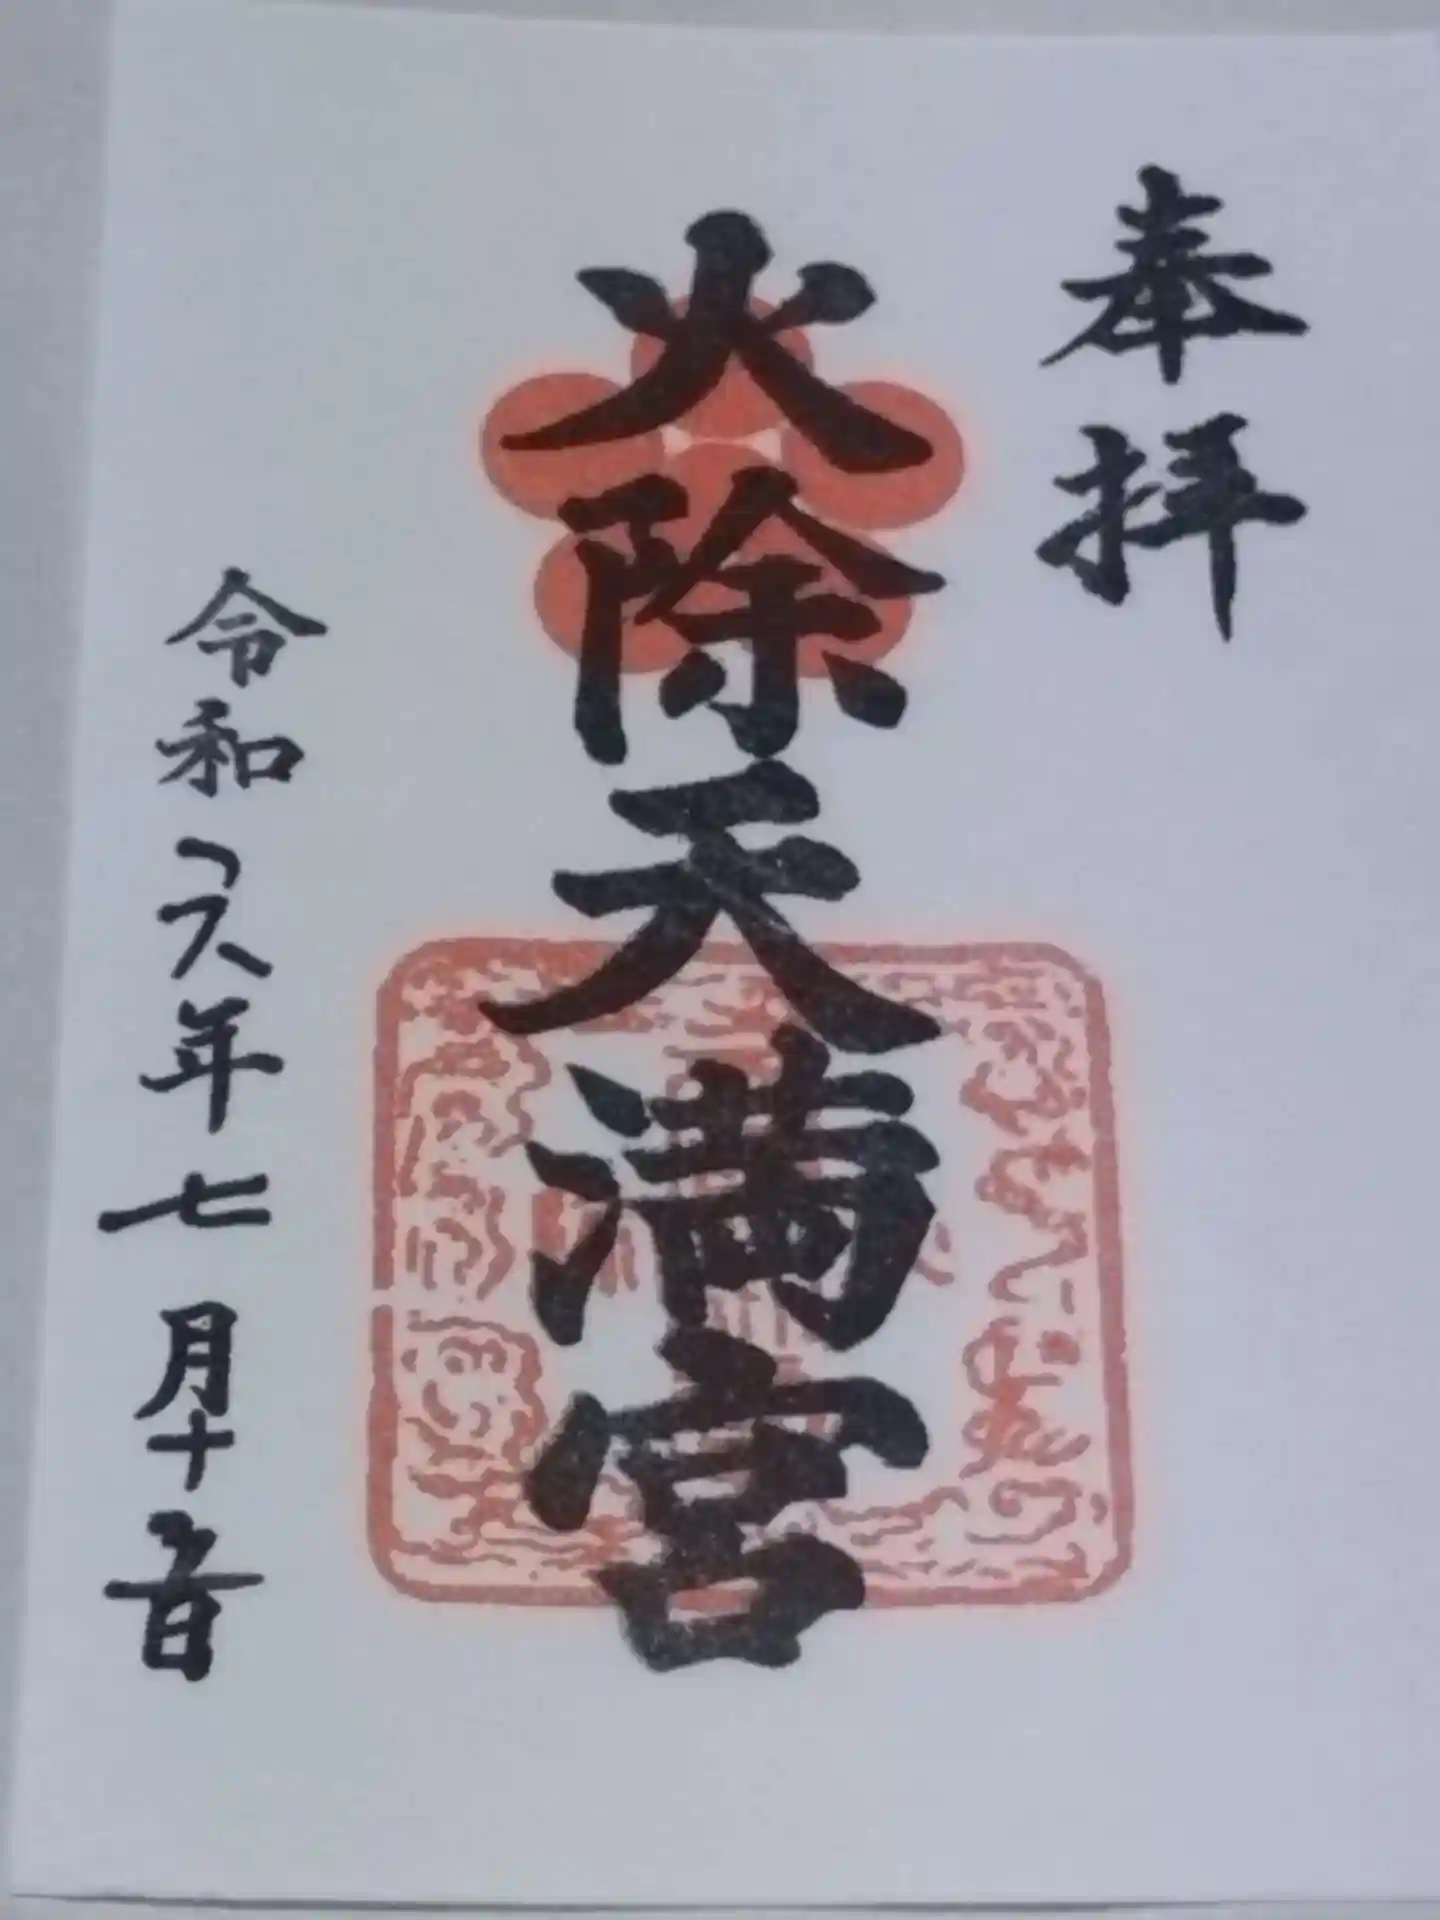 奉拝
火除天満宮
令和六年七月十五日